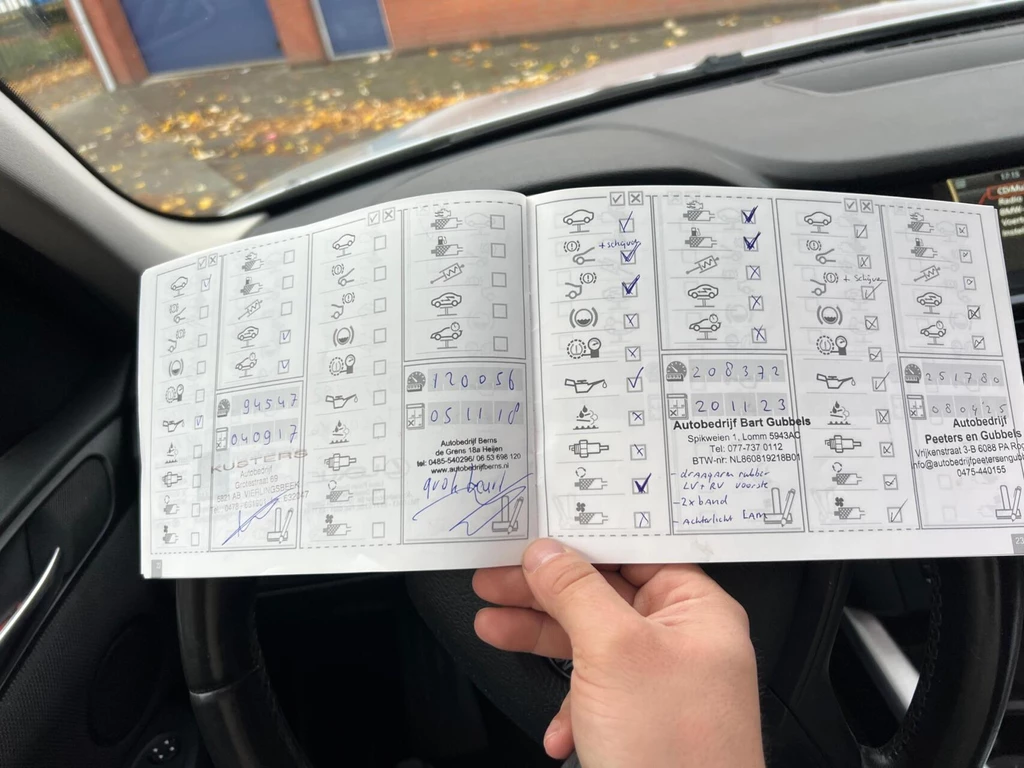 94547
040917
KUSTERS
Autobedrijf
Grotestraat 69
120056
05 11 18
Autobedrijf Berns
de Grens 18a Heijen
tel: 0485-540296/ 06 53 698 120
www.autobedrijfberns.nl
grote beurt
+ schijven
208372
20 11 23
Autobedrijf Bart Gubbels
Spikweien 1, Lomm 5943AC
Tel: 077-737 0112
BTW-nr: NL860819218B01
- draagarm rubber
LV + RV voorste
- 2x band
- Achterlicht Lamp
+ Schijven
251780
080425
Autobedrijf
Peeters en Gubbels
Vrijkenstraat 3-B 6088 PA Ro
0475-440155
23
17:15
CD/Mu
Radio